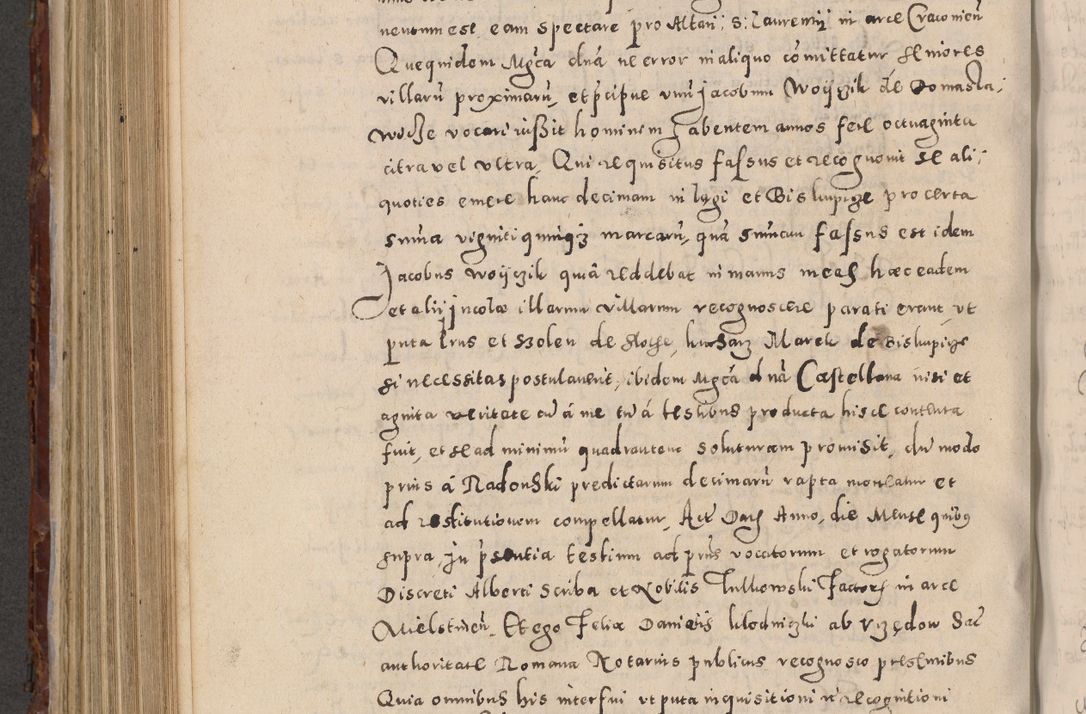 nentem esse eam spectare pro Altari S: Laurentij in arce Cracovien̄
Quequidem Mgca dnā ne error in aliquo cōmittatur seniores
villarū proximarū, et p̄cipue vnū Jacobum Woÿczik de Domasla;
wicze vocari iußit hominem habentem annos fere octuaginta
citra vel vltra, Qui requisitus faſsus et recognovit se ali;
quoties emere hanc decimam in lęgi et Biskupicze pro certa
sum̄a viginti quinqz marcarū, quā sum̄am faſsus est idem
Jacobus Woÿczik quiā reddebat in manus meas hæc eadem
et alij incolæ illarum villarum recognoscere parati erant, vt
puta Irus et Szolen de Hocze, Marek de Biskupicze
si necessitas postulaverit, ibidem Mgcā dnā Castellana visi et
agnita veritate tū á me tū á testibus producta hisce contenta
fuit, et se ad minimū quadrantem soluturam promisit, dū modo
prius á Radonski predictarum decimarū rapta moneatur et
ad restitutionem compellatur, Act Dat Anno, die Mense quibꝰ
supra In p̄sentia testium ad prmis vocatorum et rogatorum
Discreti Alberti Scriba et Nobilis Factors in arce
Mielstinen̄. Et ego Felix Danielis Klodniczki ab Vrzędow Sac̄
authoritate Romana Notarius publicus recognosco presentibus
Quia omnibus his interfui vt puta inquisitioni n̄ recognitioni